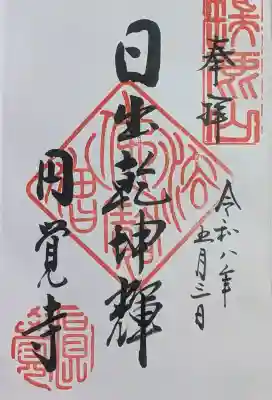 奉拝
令和八年
五月三日
日出乾坤輝
円覚寺